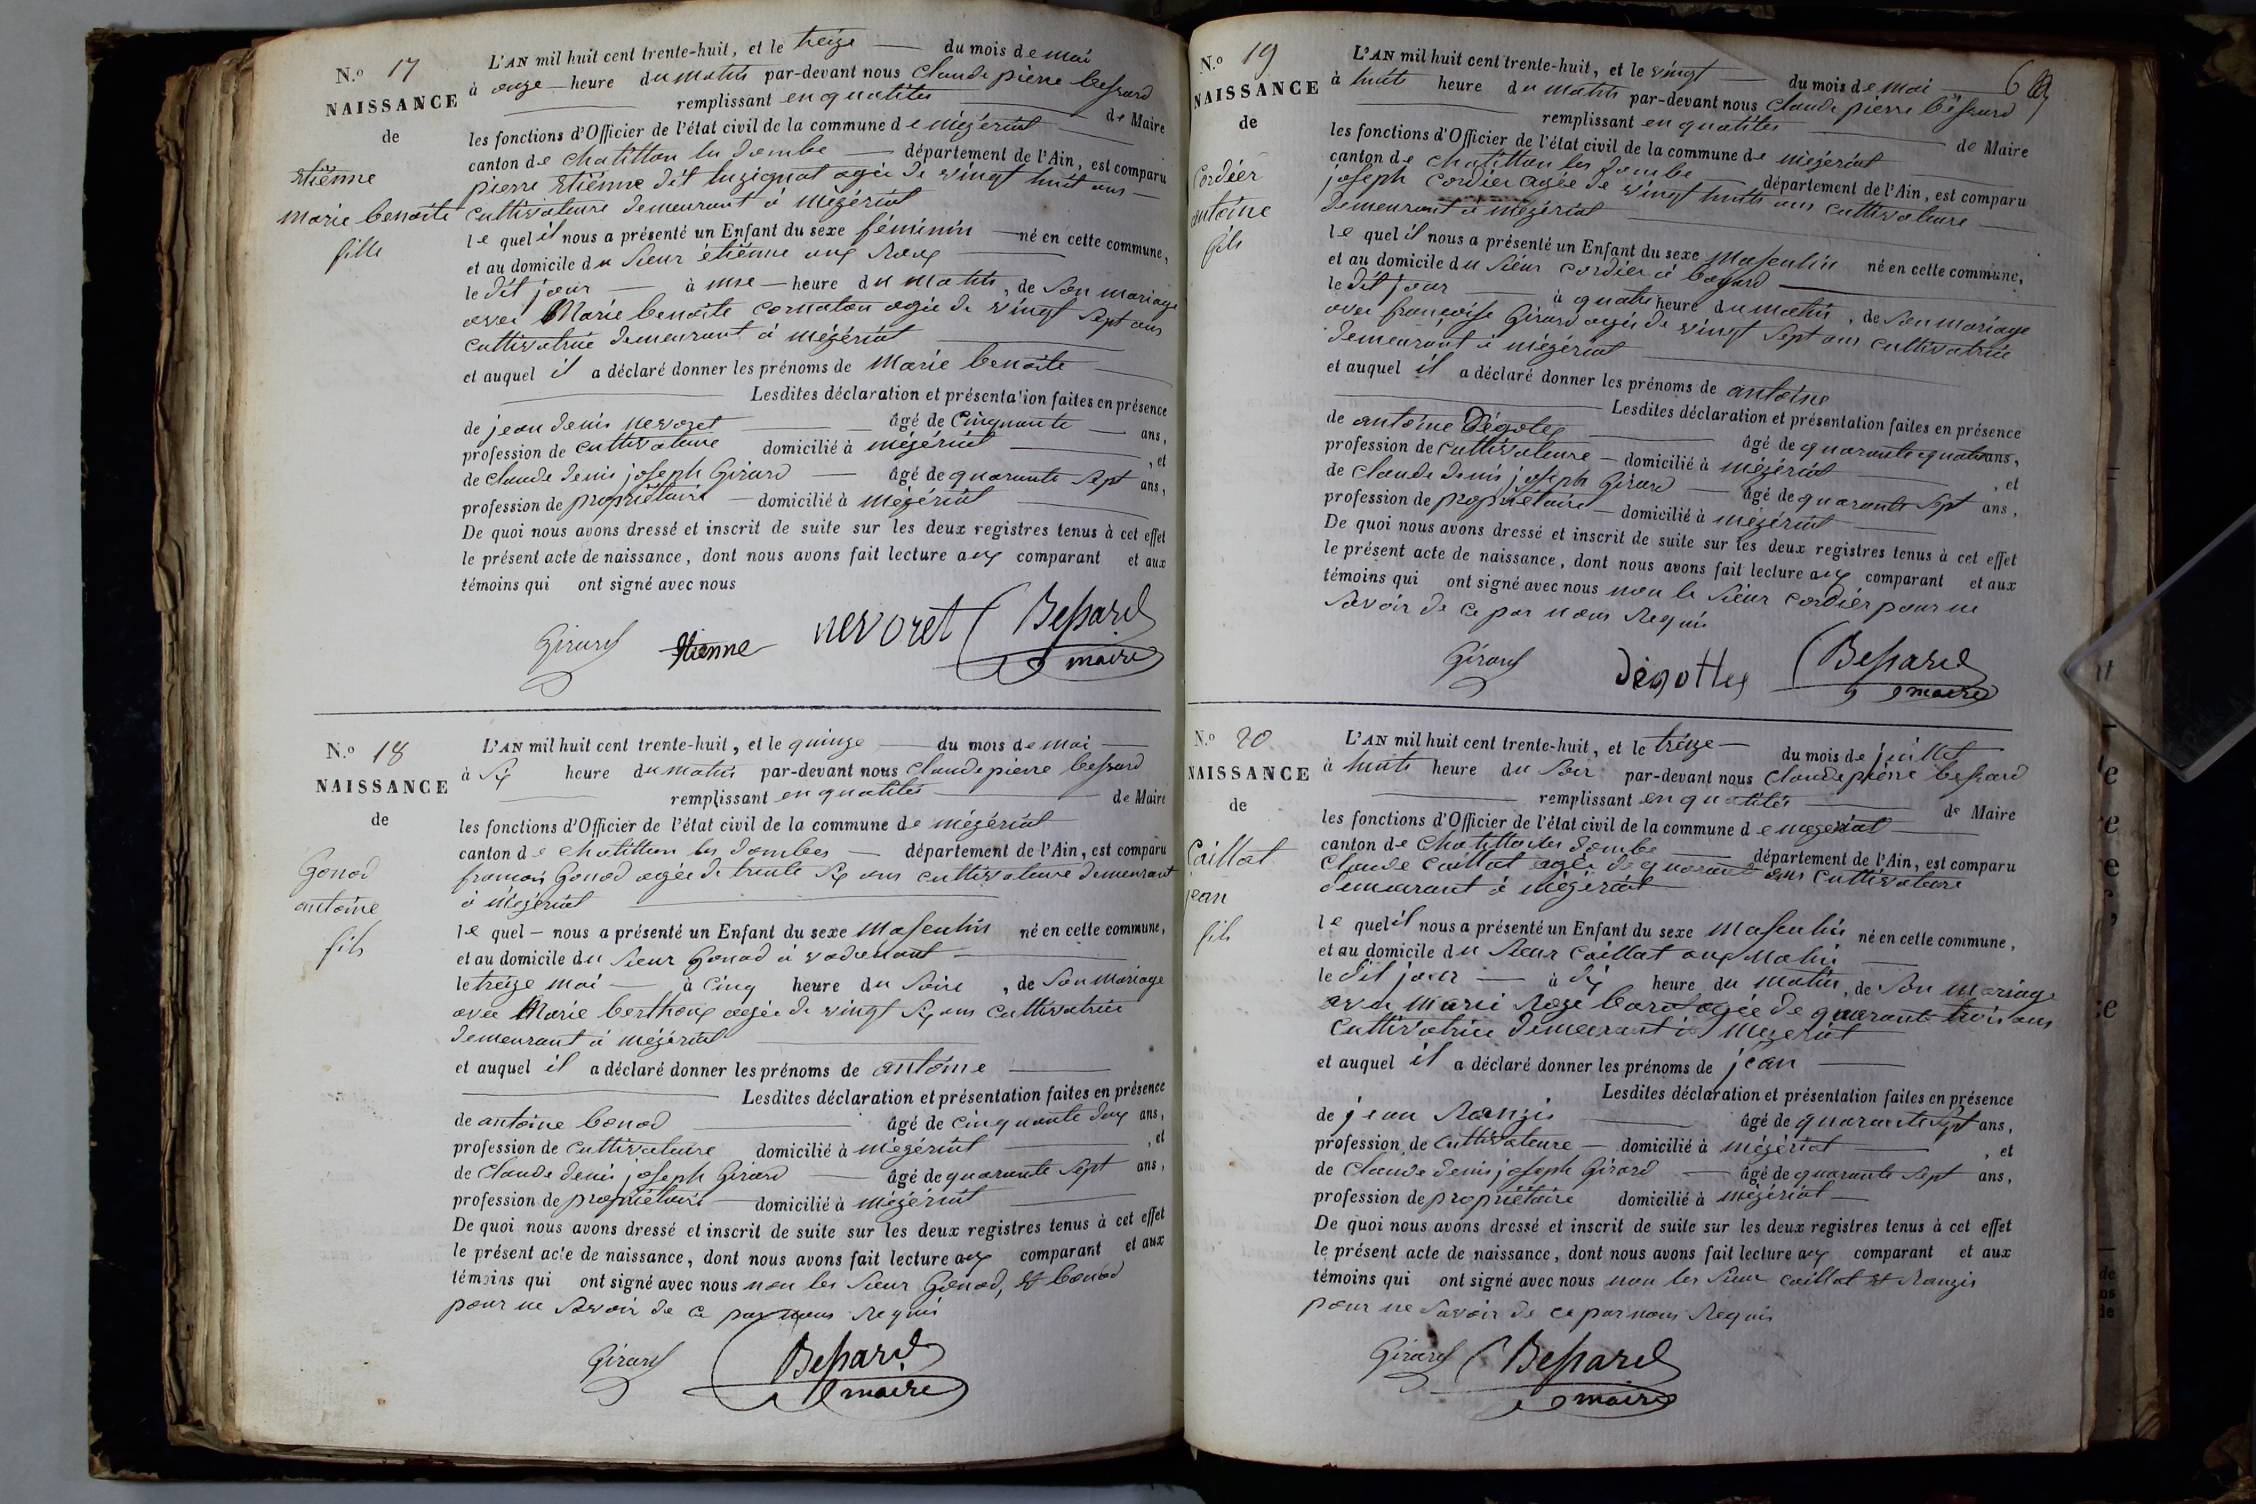 N.º 17
NAISSANCE
de
Etiénne
marie benoîte
fille
L'AN mil huit cent trente-huit, et le treize du mois de mai
à onze heure du matin par-devant nous Claude pierre bessard
remplissant en qualités de Maire
les fonctions d'Officier de l'état civil de la commune de mézériat
canton de chatillon les dombe département de l'Ain, est comparu
pierre Etiénne dit luzignat agée de vingt huit ans
cultivateure demeurant à mézériat
le quel il nous a présenté un Enfant du sexe féminin né en cette commune,
et au domicile du Sieur étiénne aux
le dit jour à une heure du matin, de son mariage
avec Marie benoite cornaton agée de vingt sept ans
cultivatrice demeurant à mézériat
et auquel il a déclaré donner les prénoms de Marie benoite
Lesdites déclaration et présentation faites en présence
de jean denis nevoret âgé de Cinquante ans,
profession de cultivateure domicilié à mézériat, et
de claude denis joseph Girard âgé de quarante sept ans,
profession de propriétaire domicilié à mézériat
De quoi nous avons dressé et inscrit de suite sur les deux registres tenus à cet effet
le présent acte de naissance, dont nous avons fait lecture aux comparant et aux
témoins qui ont signé avec nous
Girard Etienne nevoret Bessard
maire
N.º 18
NAISSANCE
de
Gonod
antoine
fils
L'AN mil huit cent trente-huit, et le quinze du mois de mai
à six heure du matin par-devant nous Claude pierre bessard
remplissant en qualités de Maire
les fonctions d'Officier de l'état civil de la commune de mézériat
canton de chatillon les dombes département de l'Ain, est comparu
françois Gonod agée de trente six ans cultivateure demeurant
à mézériat
le quel nous a présenté un Enfant du sexe masculin né en cette commune,
et au domicile du Sieur Gonod à
le treize mai à cinq heure du soire, de son mariage
avec Marie berthoux agée de vingt six ans cultivatrice
demeurant à mézériat
et auquel il a déclaré donner les prénoms de antoine
Lesdites déclaration et présentation faites en présence
de antoine bonod âgé de cinquante dux ans,
profession de cultivateure domicilié à mézériat, et
de Claude denis joseph Girard âgé de quarante sept ans,
profession de propriétaire domicilié à mézériat
De quoi nous avons dressé et inscrit de suite sur les deux registres tenus à cet effet
le présent acte de naissance, dont nous avons fait lecture aux comparant et aux
témoins qui ont signé avec nous non les sieur Gonod, et bonod
pour ne savoir de ce par nous requis
Girard Bessard
maire
6
N.º 19
NAISSANCE
de
Cordiér
antoine
fils
L'AN mil huit cent trente-huit, et le vingt du mois de mai
à huits heure du matin par-devant nous Claude pierre bessard
remplissant en qualités de Maire
les fonctions d'Officier de l'état civil de la commune de mézériat
canton de chatillon les dombe département de l'Ain, est comparu
joseph cordiér agée de vingt huits ans cultivateure
demeurant à mézériat
le quel il nous a présenté un Enfant du sexe masculin né en cette commune,
et au domicile du Siéur cordiér à bayard
le dit jour à quatre heure du matin, de son mariage
avec françoise Girard agée de vingt sept ans cultivatrice
demeurant à mézériat
et auquel il a déclaré donner les prénoms de antoine
Lesdites déclaration et présentation faites en présence
de antoine Dégotex âgé de quarante quatre ans,
profession de cultivateure domicilié à mézériat, et
de claude denis joseph Girard âgé de quarante sept ans,
profession de propriétaire domicilié à mézériat
De quoi nous avons dressé et inscrit de suite sur les deux registres tenus à cet effet
le présent acte de naissance, dont nous avons fait lecture aux comparant et aux
témoins qui ont signé avec nous non le Siéur cordiér pour ne
savoir de ce par nous requis
Girard dégottex Bessard
maire
N.º 20
NAISSANCE
de
Caillat
jean
fils
L'AN mil huit cent trente-huit, et le treize du mois de juillet
à huits heure du soir par-devant nous Claude pierre bessard
remplissant en qualités de Maire
les fonctions d'Officier de l'état civil de la commune de mezeriat
canton de Chatillon les dombe département de l'Ain, est comparu
Claude Caillat agée de quarante ans cultivateure
demeurant à mézériat
le quel il nous a présenté un Enfant du sexe masculin né en cette commune,
et au domicile du Sieur Caillat aux
le dit jour à dix heure du matin, de son mariage
avec marie Roze agée de quarante trois ans
cultivatrice demeurant à mezeriat
et auquel il a déclaré donner les prénoms de jean
Lesdites déclaration et présentation faites en présence
de jean Ranzis âgé de quarante sept ans,
profession de Cultivateure domicilié à mézériat, et
de Claude denis joseph Girard âgé de quarante sept ans,
profession de propriétaire domicilié à mézériat
De quoi nous avons dressé et inscrit de suite sur les deux registres tenus à cet effet
le présent acte de naissance, dont nous avons fait lecture aux comparant et aux
témoins qui ont signé avec nous non les sieur caillat et Ranzis
pour ne savoir de ce par nous requis
Girard Bessard
maire